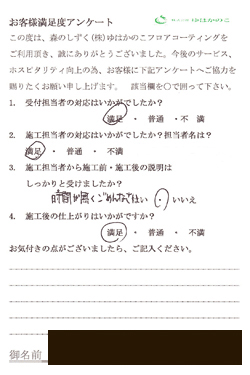 お客様満足度アンケート
この度は、森のしずく(株)ゆはかのこフロアコーティングを
ご利用頂き、誠にありがとうございました。今後のサービス、
ホスピタリティ向上の為、お客様に下記アンケートへご協力を
賜りたくお願い申し上げます。 該当欄を○で囲って下さい。
1. 受付担当者の対応はいかがでしたか?
満足 ・ 普通 ・不 満
2. 施工担当者の対応はいかがでしたか?担当者名は?
満足 ・ 普通 ・ 不満
3. 施工担当者から施工前・施工後の説明は
しっかりと受けましたか?
時間が無くごめんなさい はい ・ いいえ
4. 施工後の仕上がりはいかがですか?
満足 ・ 普通 ・ 不満
お気付きの点がございましたら、ご記入ください。
御名前